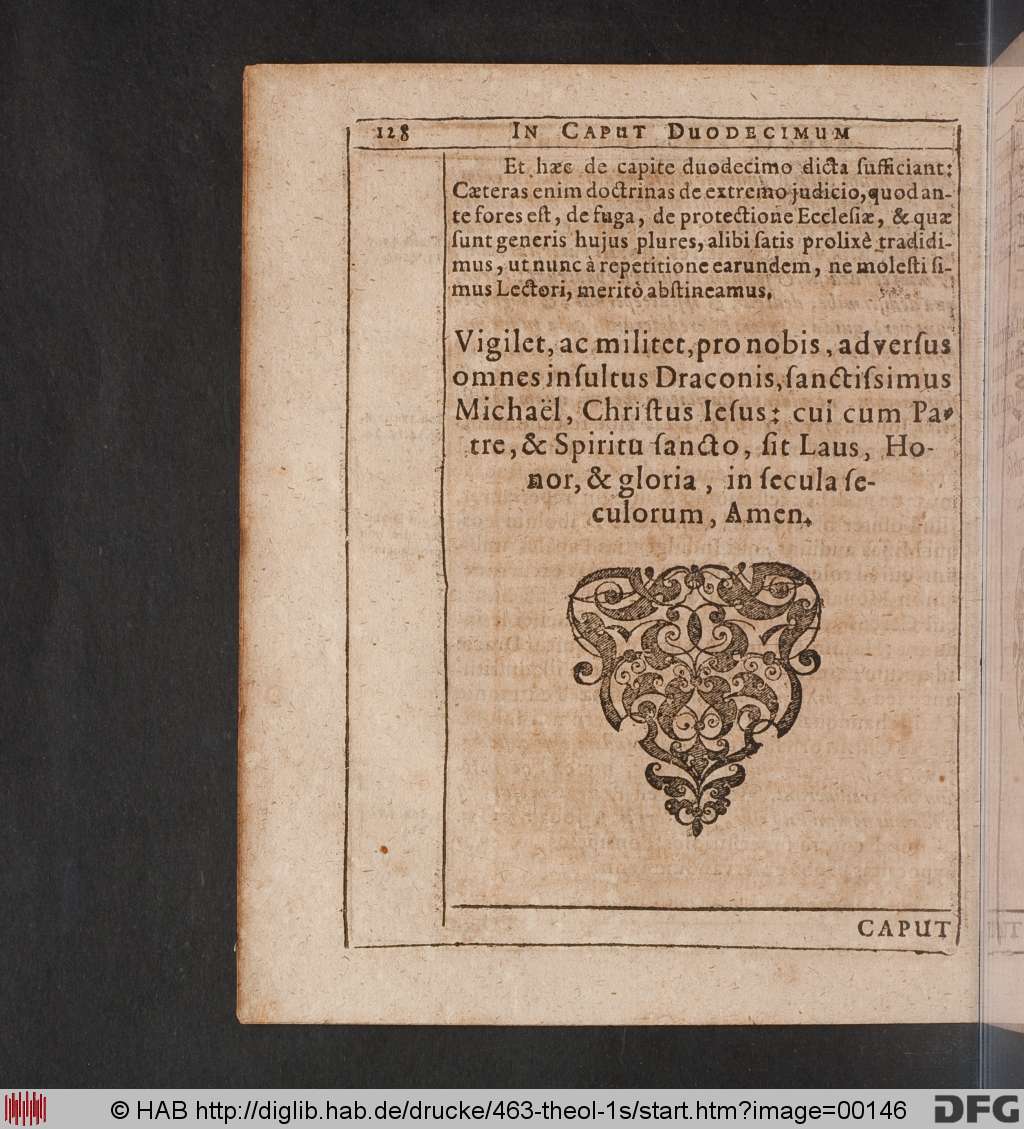 128 IN CAPUT DUODECIMUM
Et hæc de capite duodecimo dicta ſufficiant:
Cæteras enim doctrinas de extremo judicio, quod an-
te fores eſt, de fuga, de protectione Eccleſiæ, & quæ
ſunt generis hujus plures, alibi ſatis prolixè tradidi-
mus, ut nunc à repetitione earundem, ne moleſti ſi-
mus Lectori, meritò abſtineamus.
Vigilet, ac militet, pro nobis, adverſus
omnes inſultus Draconis, ſanctiſsimus
Michaël, Chriſtus Ieſus: cui cum Pa-
tre, & Spiritu ſancto, ſit Laus, Ho-
nor, & gloria, in ſecula ſe-
culorum, Amen.
CAPUT
© HAB http://diglib.hab.de/drucke/463-theol-1s/start.htm?image=00146
DFG